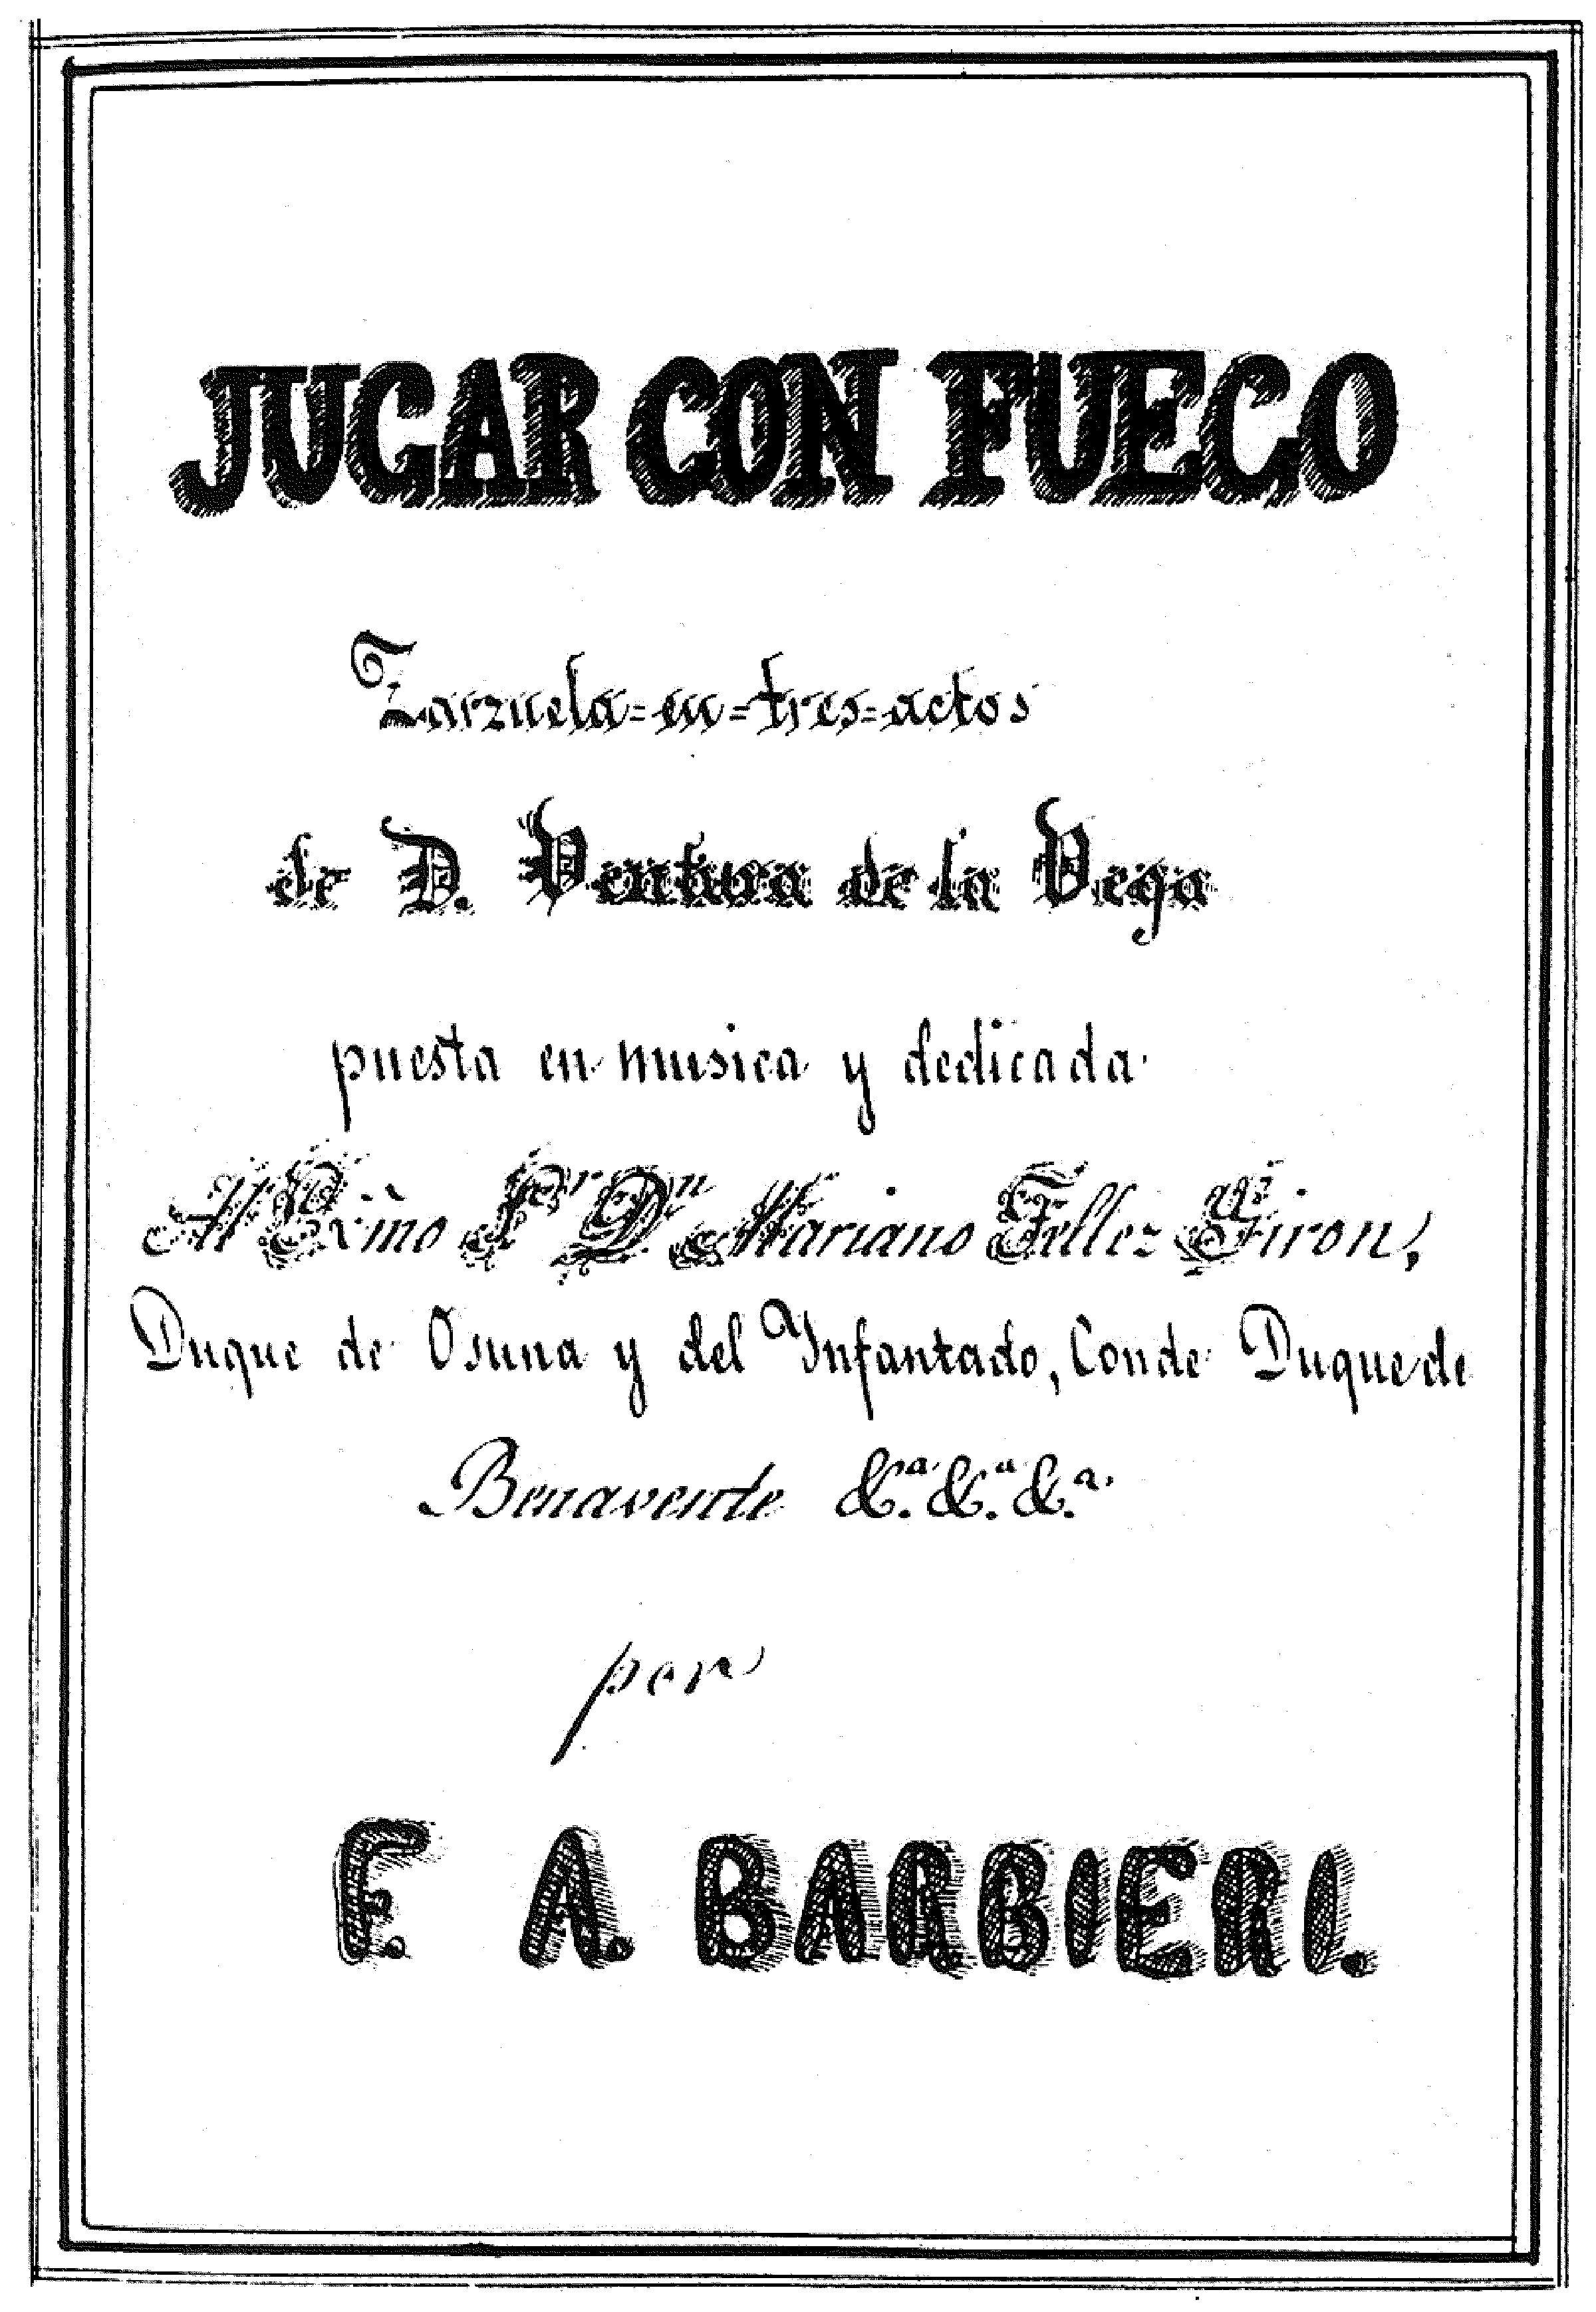 JUGAR CON FUEGO
Zarzuela=en=tres=actos
de D. Ventura de la Vega
puesta en musica y dedicada
Al Exm̃o Sr. Dn Mariano Tellez Giron,
Duque de Osuna y del Infantado, Conde Duque de
Benavente &.ª &.ª &.ª
por
F. A. BARBIERI.